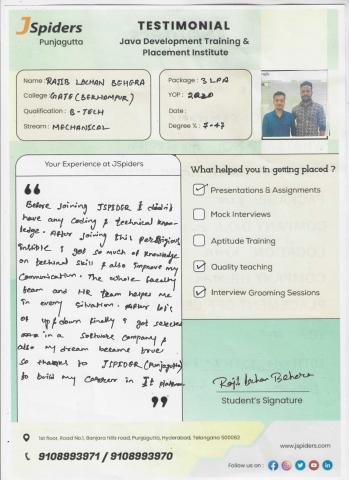 JSpiders
Punjagutta
TESTIMONIAL
Java Development Training &
Placement Institute
Name: RAJIB LOCHAN BEHERA
College: GATE (BERHAMPUR)
Qualification: B-TECH
Stream: MECHANICAL
Package: 3 LPA
YOP: 2020
Date:
Degree %: 7.47
Your Experience at JSpiders
Before Joining JSPIDER I didn't
have any coding & technical know-
ledge. After Joining this
I got so much of knowledge
on technical skill & also improve my
communication. The whole faculty
team and HR team helps me
in every situation. After lot's
of up & down finally I got selected
in a software company &
also my dream became true
so thanks to JSPIDER (Punjagutta)
to build my carrer in It platform
What helped you in getting placed ?
Presentations & Assignments
Mock Interviews
Aptitude Training
Quality teaching
Interview Grooming Sessions
Rajib Lochan Behera
Student's Signature
1st floor, Road No.1, Banjara hills road, Punjagutta, Hyderabad, Telangana 500082
9108993971 / 9108993970
www.jspiders.com
Follow us on :